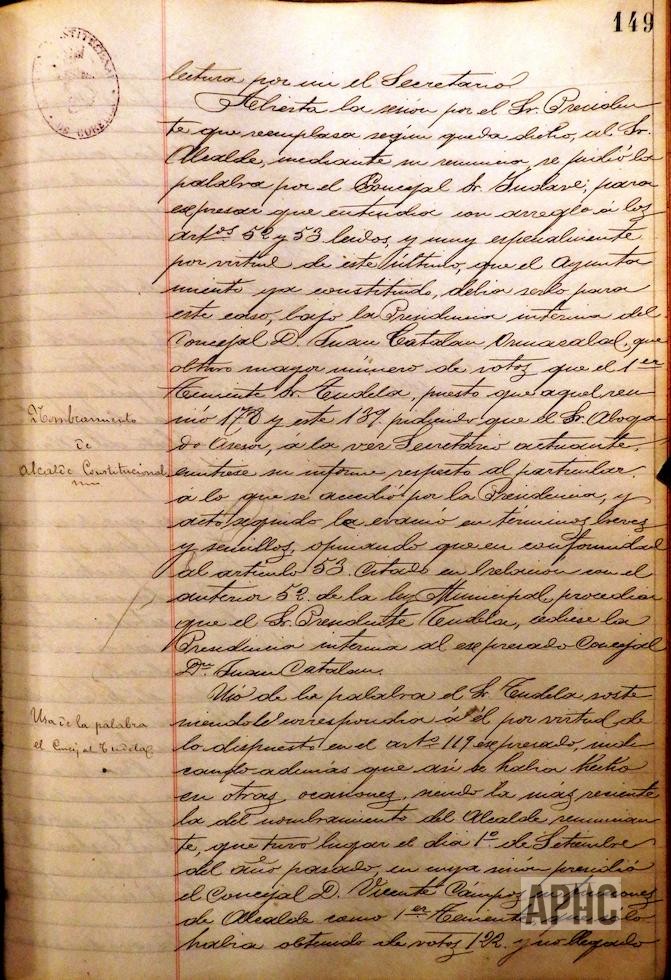 149
lectura por mi el Secretario
Abierta la sesión por el Sr. Presiden
te que reemplasa según queda dicho, al Sr.
Alcalde, mediante su renuncia, se pidió la
palabra por el Concejal Sr. para
expresar que entendia con arreglo á los
artos 52 y 53 leidos, y muy especialmente
por virtud de este último, que el Ayunta
miento ya constituido, debia serlo para
este caso, bajo la Presidencia interina del
Concejal D. Juan Catalan Ormazabal, que
obtuvo mayor número de votos que el 1er
Teniente Sr. Tudela, puesto que aquel reu
nió 178 y este 139, pidiendo que el Sr. Aboga
do Asesor, a la vez Secretario actuante,
emitiese su informe respecto al particular.
a lo que se accedió por la Presidencia, y
acto seguido lo evacuó en términos breves
y sencillos, opinando que en conformidad
al articulo 53. citado en relacion con el
anterior 52. de la ley Municipal, procedia
que el Sr. Presidente Tudela, cediese la
Presidencia interina al expresado Concejal
Dn. Juan Catalan.
Usó de la palabra el Sr. Tudela soste
niendo le correspondia á él por virtud de
lo dispuesto en el arto 119 expresado, indi
cando además que asi se habia hecho
en otras ocasiones, siendo la más reciente
la del nombramiento del Alcalde renuncian
te, que tuvo lugar el dia 1º de Setiembre
del año pasado, en cuya sesión presidió
el Concejal D. Vicente Campos, en funciones
de Alcalde como 1er Teniente, que solo
habia obtenido de votos 122. y no llegado
Nombramiento
de
Alcalde Constitucional
Usa de la palabra
el Concejal Tudela
APHC